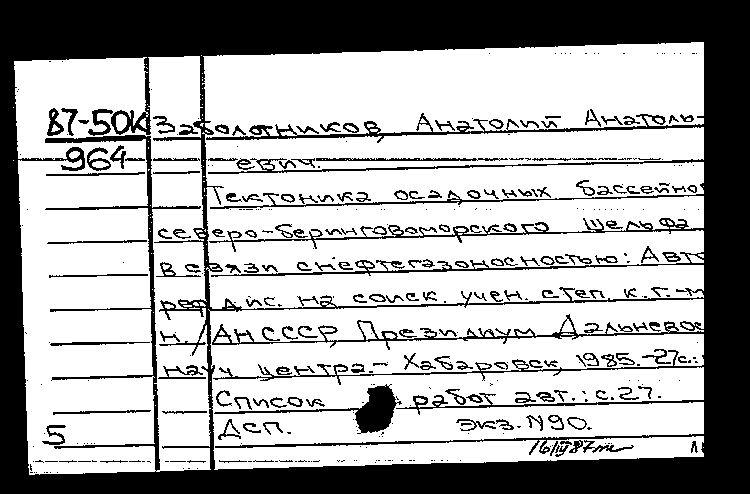 87-50К Заболотников, Анатолий Анатоль-
964 евич.
Тектоника осадочных бассейно
северо-беринговоморского шельфа
в связи с нефтегазоносностью: Авто
реф. дис. на соиск. учен. степ. к. г.-м
н. / АН СССР, Президиум Дальневос
науч. центра.- Хабаровск, 1985.-27с.:
Список работ авт.: с.27.
5 Дсп. экз. N90.
16/III 87